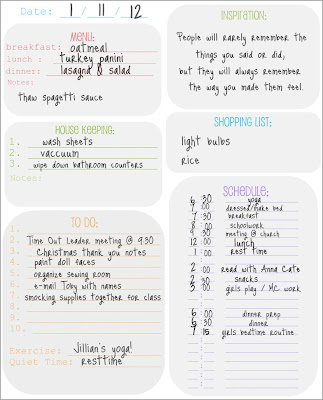 Date: 1 / 11 / 12
MENU:
breakfast: oatmeal
lunch : turkey panini
dinner: lasagna & salad
Notes:
thaw spagetti sauce
HOUSE KEEPING:
1. wash sheets
2. vaccuum
3. wipe down bathroom counters
Notes:
TO DO:
1.
2. Time Out Leader meeting @ 9:30
3. Christmas thank you notes
4. paint doll faces
5. organize sewing room
6. e-mail Toby with names
7. smocking supplies together for class
8.
9.
10.
Exercise: Jillian's yoga!
Quiet Time: resttime
INSPIRATION:
People will rarely remember the
things you said or did,
but they will always remember
the way you made them feel.
SHOPPING LIST:
light bulbs
rice
SCHEDULE:
6:30 yoga
7:00 dressed/make bed
7:30 breakfast
8:00 schoolwork
:30 meeting @ church
12:00 lunch
1:00 rest time
2:00 read with Anna Cate
:30 snacks
:00 girls play / MC work
6:00 dinner prep
6:30 dinner
7:15 girls bedtime routine